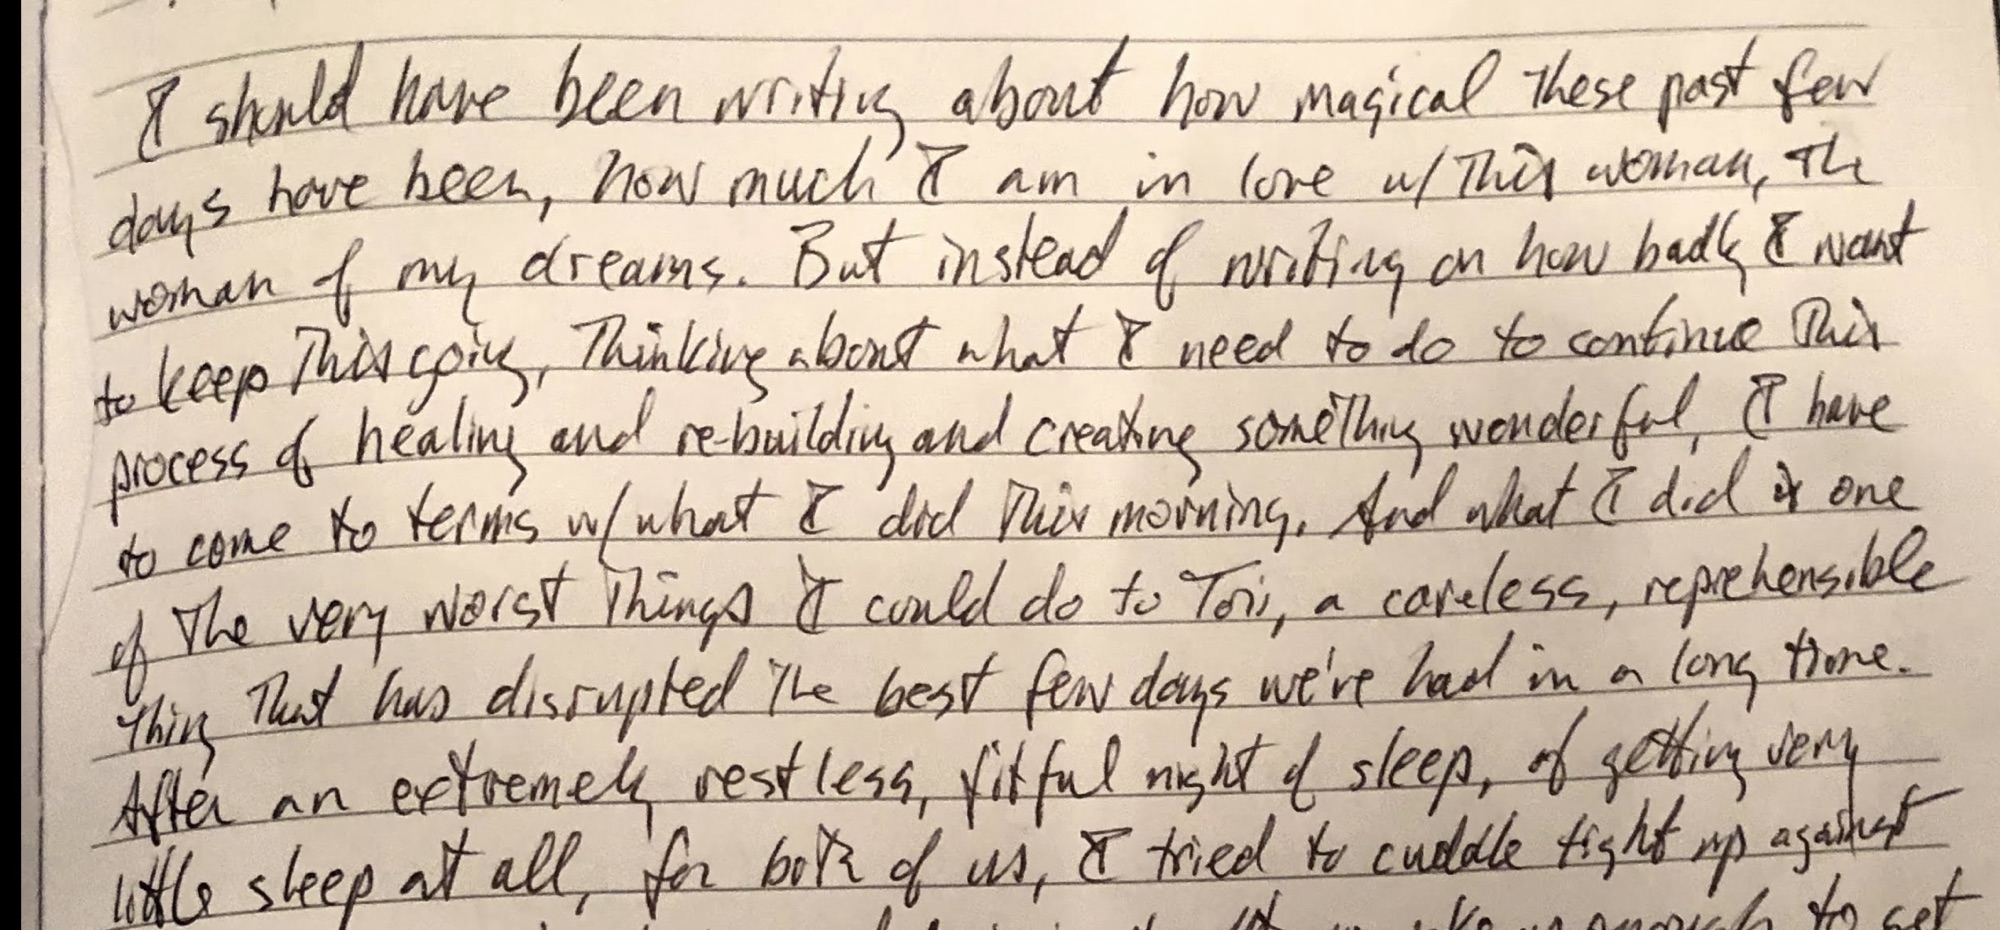 I should have been writing about how magical these past few
days have been, how much I am in love w/ this woman, the
woman of my dreams. But instead of writing on how badly I want
to keep this going, thinking about what I need to do to continue this
process of healing and re-building and creating something wonderful, I have
to come to terms w/ what I did this morning. And what I did is one
of the very worst things I could do to Tori, a careless, reprehensible
thing that has disrupted the best few days we've had in a long time.
After an extremely restless, fitful night of sleep, of getting very
little sleep at all, for both of us, I tried to cuddle tight up against
enough to get